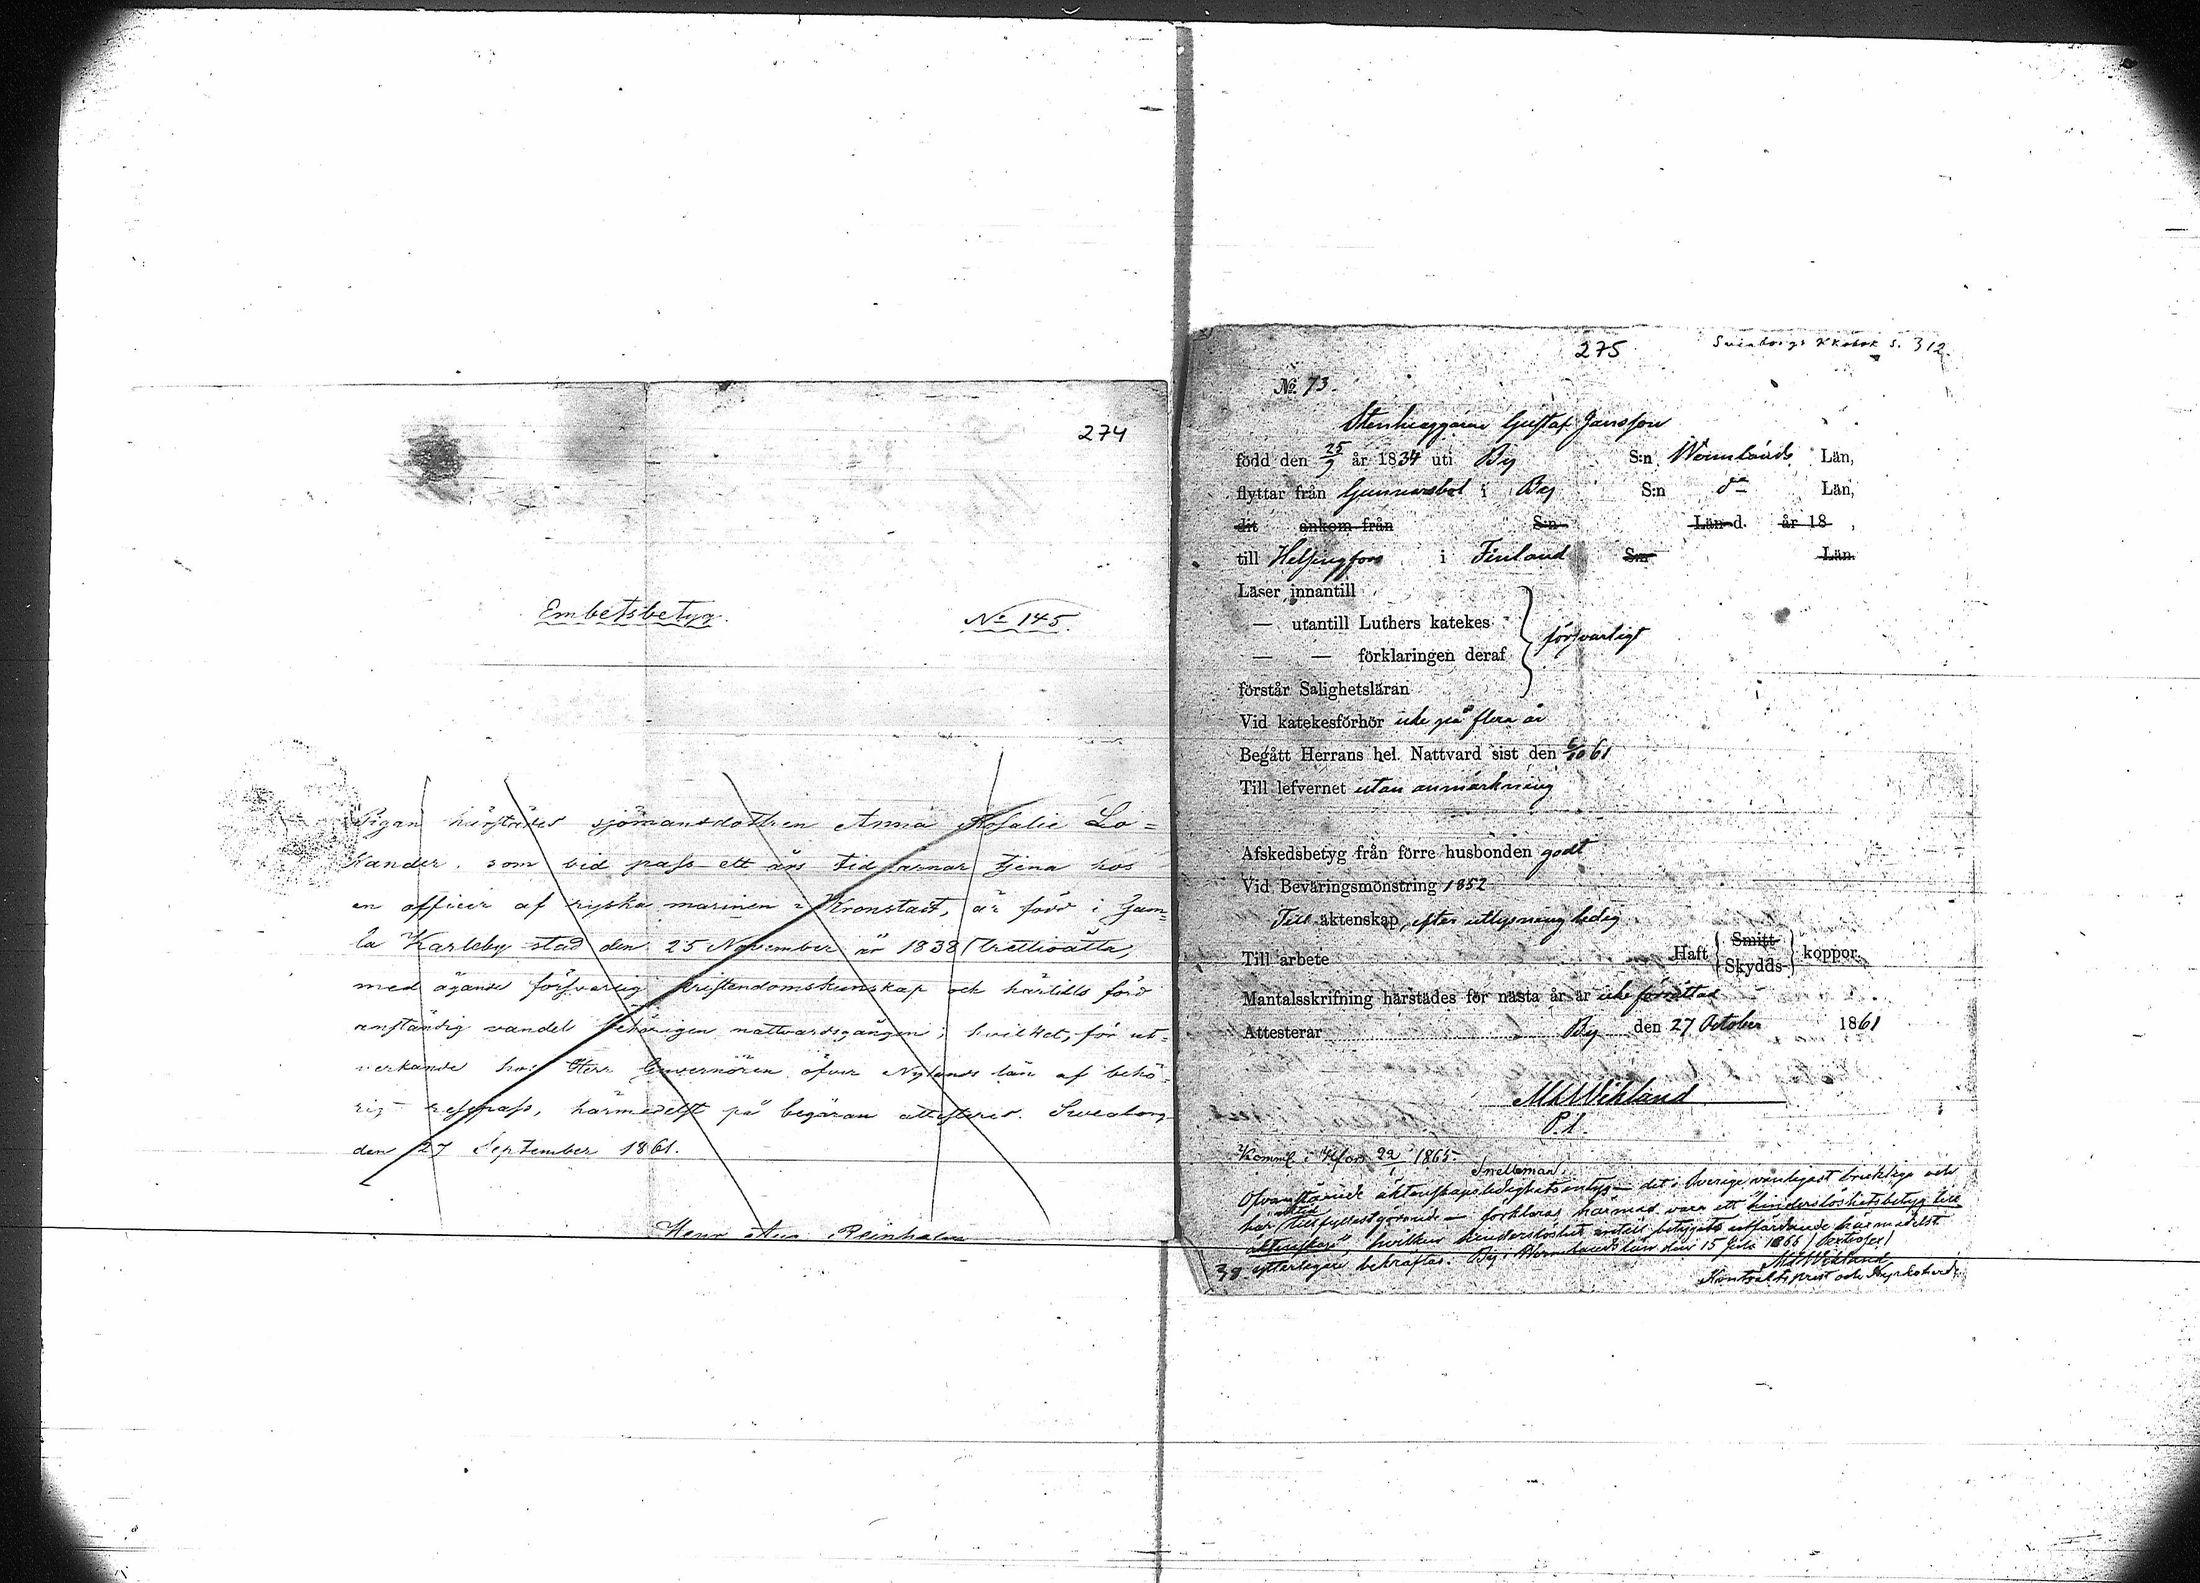 274
Embetsbetyg.
No 145.
Pigan härstädes sjömansdottren Anna Rosalie Lo=
kander, som vid pass ett års tid ärnar tjena hos
en officer af ryska marinen i Kronstadt, är född i Gam=
la Karleby stad den 25 November år 1838 (trettioåtta),
med ägande försvarlig kristendomskunskap och härtills förd
anständig vandel behörigen nattvardsgången; hvilket, för ut=
verkande hos Herr Guvernören öfver Nylands län af behö=
rigt respass, härmedelst på begäran attesteras. Sveaborg
den 27 September 1861.
Henr. Aug. Reinholm
275
Sveaborgs Kkobok s. 312.
No 73.
Stenhuggaren Gustaf Jansson
född den 25/9 år 1834 uti By S:n Wermlands Län,
flyttar från Gunnarsbol i By S:n do Län,
dit ankom från S:n Län d. år 18 ,
till Helsingfors i Finland S:n Län.
Läser innantill
— utantill Luthers katekes
försvarligt
— — förklaringen deraf
förstår Salighetsläran
Vid katekesförhör icke på flera år
Begått Herrans hel. Nattvard sist den 6/10 61
Till lefvernet utan anmärkning
Afskedsbetyg från förre husbonden godt
Vid Beväringsmönstring 1852
Till äktenskap, efter utlysning ledig
Till arbete Haft { Smitt- Skydds- } koppor.
Mantalsskrifning härstädes för nästa år är icke förrättad
Attesterar By den 27 October 1861
Wikland
P. l.
Komml. i Hfors 22/1 1865
Snellman.
Ofvanstående äktenskapsledighetsintyg — det i Sverige vanligast brukliga och
här alltid tillfyllestgörande — förklaras härmed vara ett "hinderslöshetsbetyg till
äktenskap", hvilken hinderslöshet intill betygets utfärdande härmedelst
ytterligare bekräftas. By i Wermlands län den 15 Juli 1866
Wikland
Kontraktsprost och Kyrkoherde